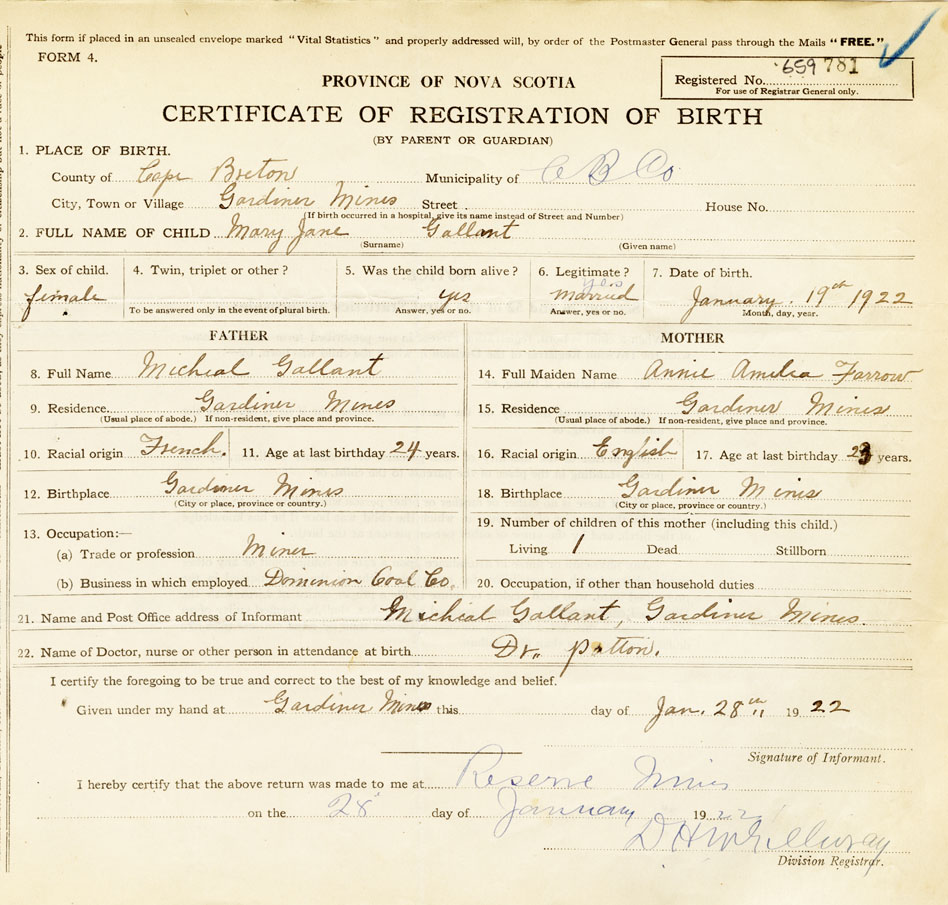 This form if placed in an unsealed envelope marked "Vital Statistics" and properly addressed will, by order of the Postmaster General pass through the Mails "FREE."
FORM 4.
Registered No. 659781
For use of Registrar General only.
PROVINCE OF NOVA SCOTIA
CERTIFICATE OF REGISTRATION OF BIRTH
(BY PARENT OR GUARDIAN)
1. PLACE OF BIRTH.
County of Cape Breton Municipality of C B Co
City, Town or Village Gardiner Mines Street House No.
(If birth occurred in a hospital, give its name instead of Street and Number)
2. FULL NAME OF CHILD Mary Jane Gallant
(Surname) (Given name)
3. Sex of child. 4. Twin, triplet or other? 5. Was the child born alive? 6. Legitimate? 7. Date of birth.
yes
female yes married January. 19th 1922
To be answered only in the event of plural birth. Answer, yes or no. Answer, yes or no. Month, day, year.
FATHER
8. Full Name Micheal Gallant
9. Residence Gardiner Mines
(Usual place of abode.) If non-resident, give place and province.
10. Racial origin French. 11. Age at last birthday 24 years.
12. Birthplace Gardiner Mines
(City or place, province or country.)
13. Occupation:—
(a) Trade or profession Miner
(b) Business in which employed Dominion Coal Co.
MOTHER
14. Full Maiden Name Annie Amelia Farrow
15. Residence Gardiner Mines
(Usual place of abode.) If non-resident, give place and province.
16. Racial origin English 17. Age at last birthday 23 years.
18. Birthplace Gardiner Mines
(City or place, province or country.)
19. Number of children of this mother (including this child.)
Living 1 Dead Stillborn
20. Occupation, if other than household duties
21. Name and Post Office address of Informant Micheal Gallant, Gardiner Mines.
22. Name of Doctor, nurse or other person in attendance at birth Dr. Patton.
I certify the foregoing to be true and correct to the best of my knowledge and belief.
Given under my hand at Gardiner Mines this day of Jan. 28th 1922
Signature of Informant.
I hereby certify that the above return was made to me at Reserve Mines
on the 28 day of January 1922
Division Registrar.